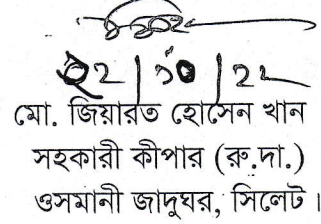 ২২|১০|২২
মো. জিয়ারত হোসেন খান
সহকারী কীপার (রু.দা.)
ওসমানী জাদুঘর, সিলেট।